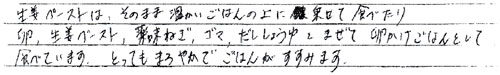 生姜ペーストは、そのまま温かいごはんの上に乗せて食べたり
卵、生姜ペースト、薬味ねぎ、ゴマ、だししょうゆとまぜて卵かけごはんとして
食べています。とってもまろやかでごはんがすすみます。